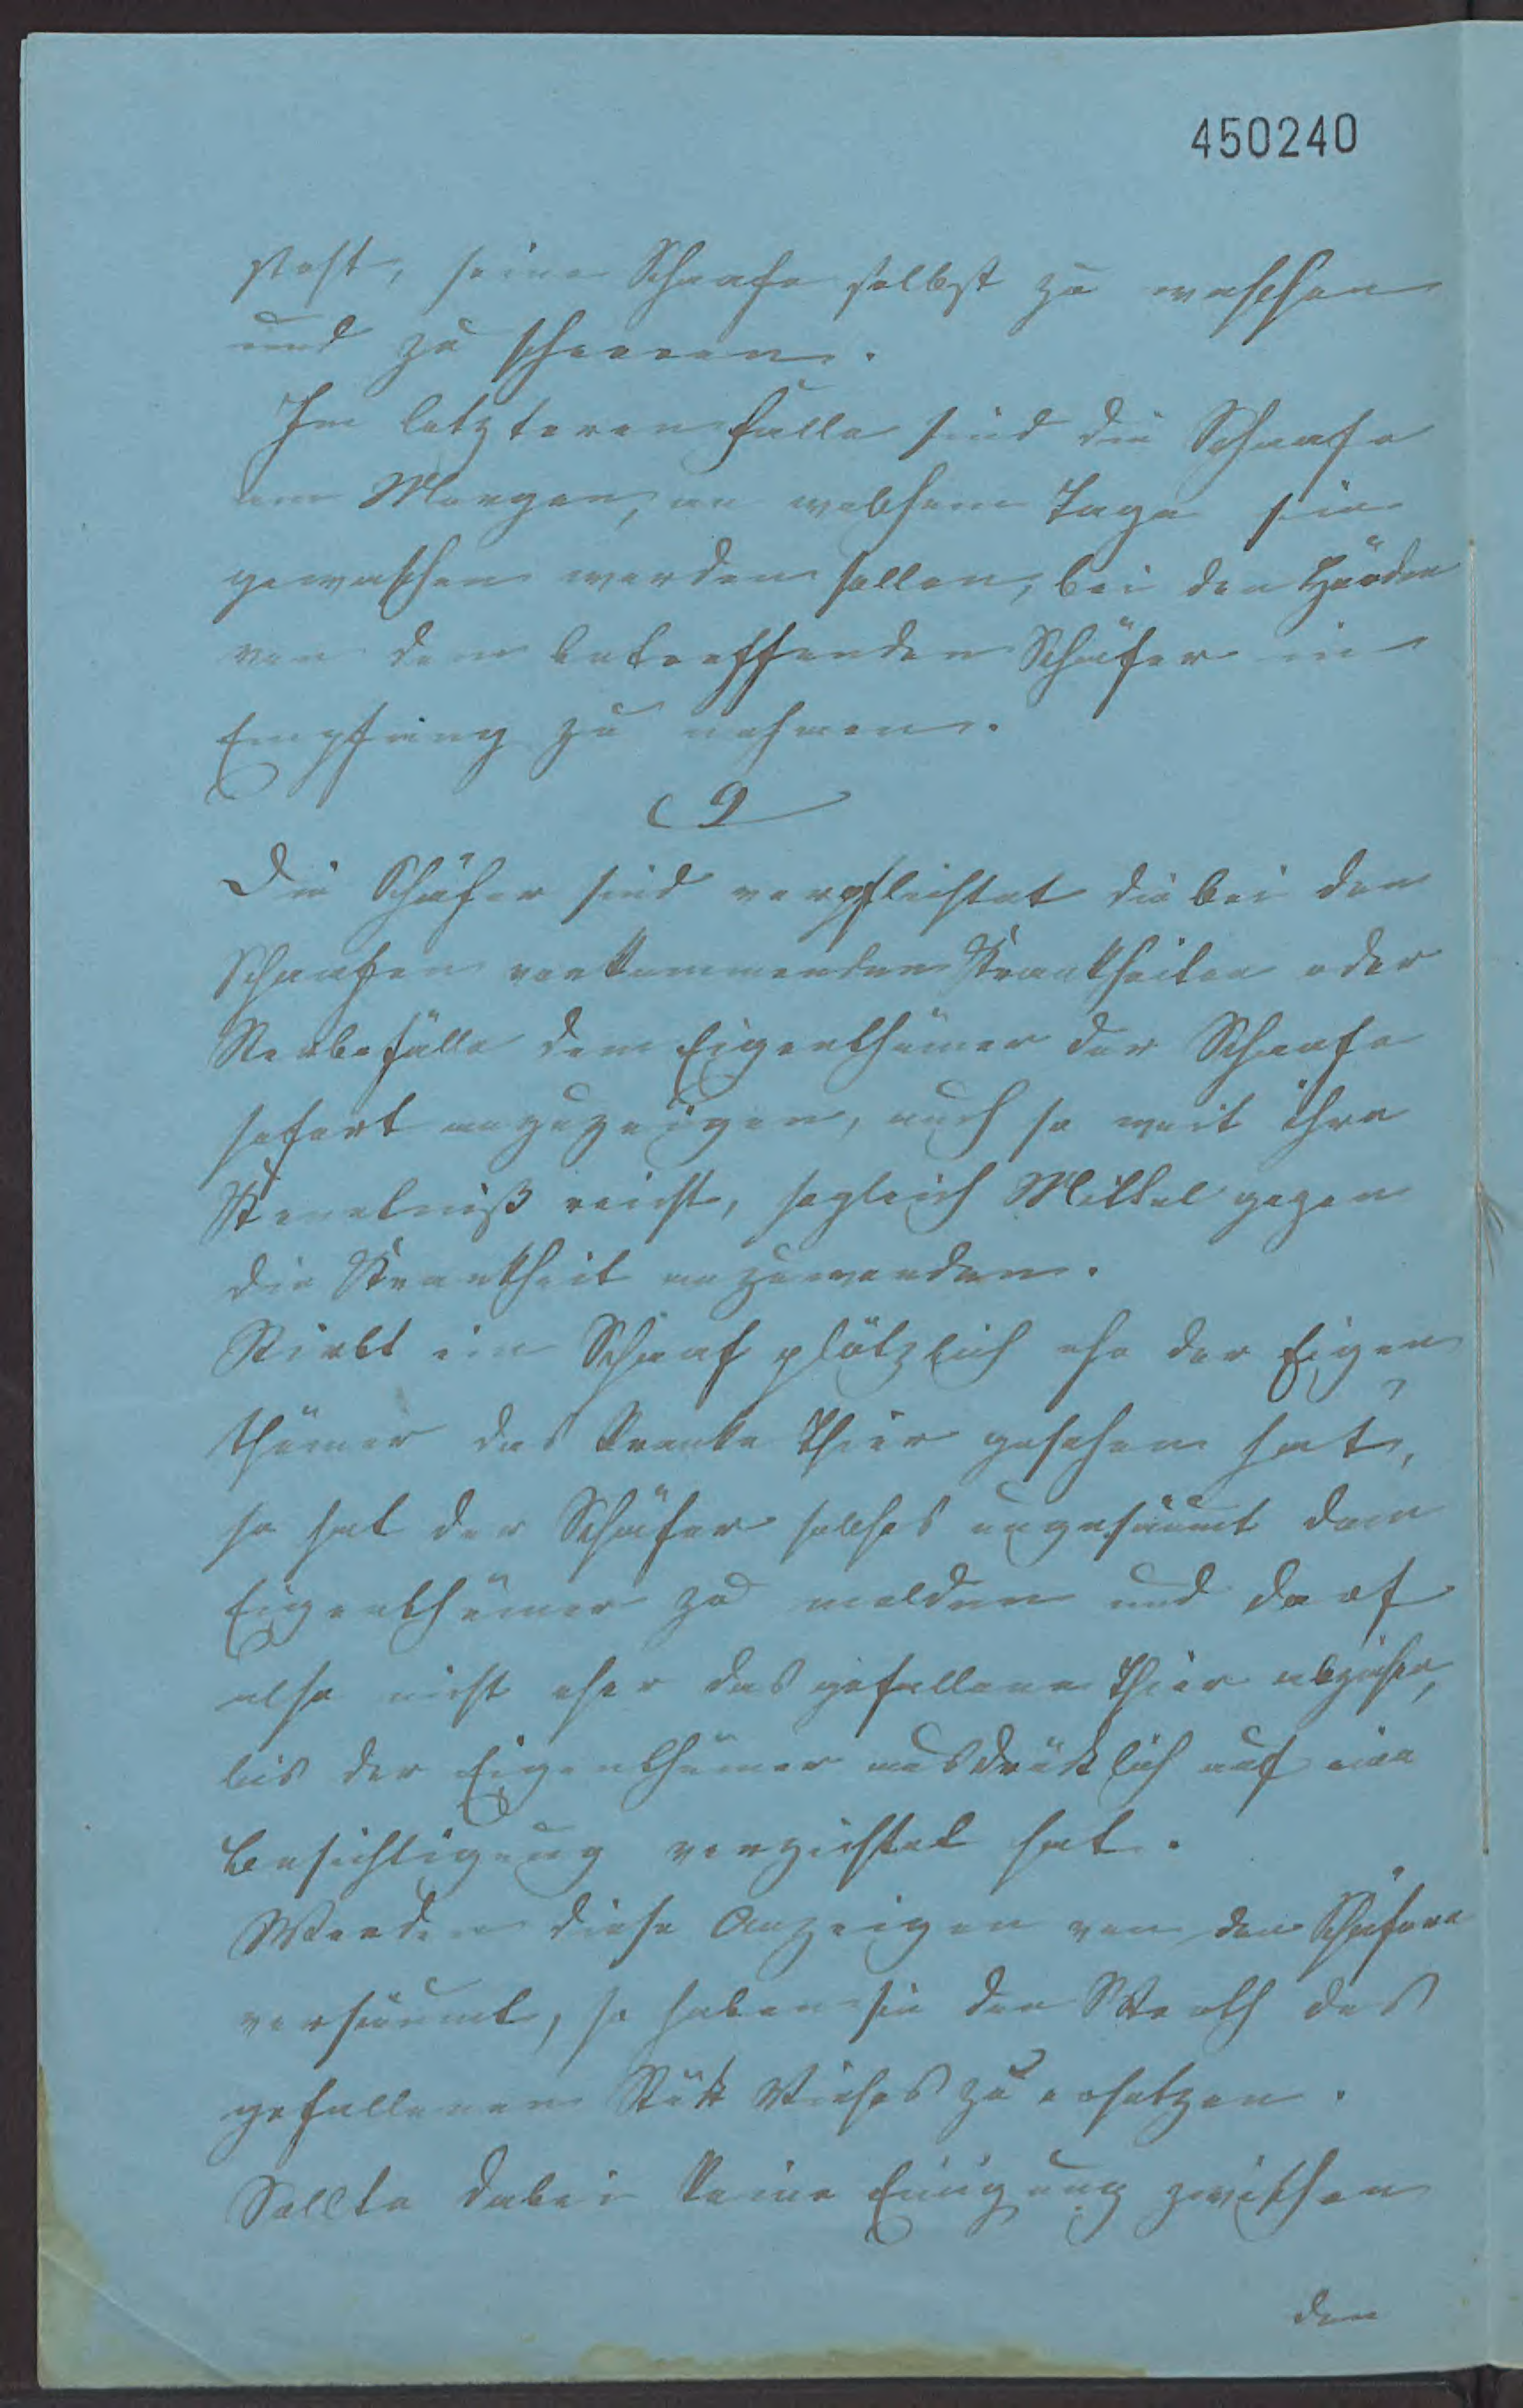 450240
steht, seine Schaafe selbst zu waschen
und zu scheeren.
Im letzteren Falle sind die Schaafe
am Morgen, an welchem Tage sie
gewaschen werden sollen, bei den Hürden
von dem betreffenden Schäfer in
Empfang zu nehmen.
9
Die Schäfer sind verpflichtet die bei den
Schaafen vorkommenden Krankheiten oder
Sterbefälle dem Eigenthümer der Schaafe
sofort anzuzeigen, auch so weit ihre
Kenntniß reicht, sogleich Mittel gegen
die Krankheit anzuwenden.
Stirbt ein Schaaf plötzlich ehe der Eigen
thümer das kranke Thier gesehen hat,
so hat der Schäfer solches ungesäumt dem
Eigenthümer zu melden und darf
also nicht eher das gefallene Thier abziehen,
bis der Eigenthümer ausdrücklich auf eine
Besichtigung verzichtet hat.
Werden diese Anzeigen von den Schäfern
versäumt, so haben sie den Werth des
gefallenen Stück Viehes zu ersetzen.
Sollte dabei keine Einigung zwischen
den